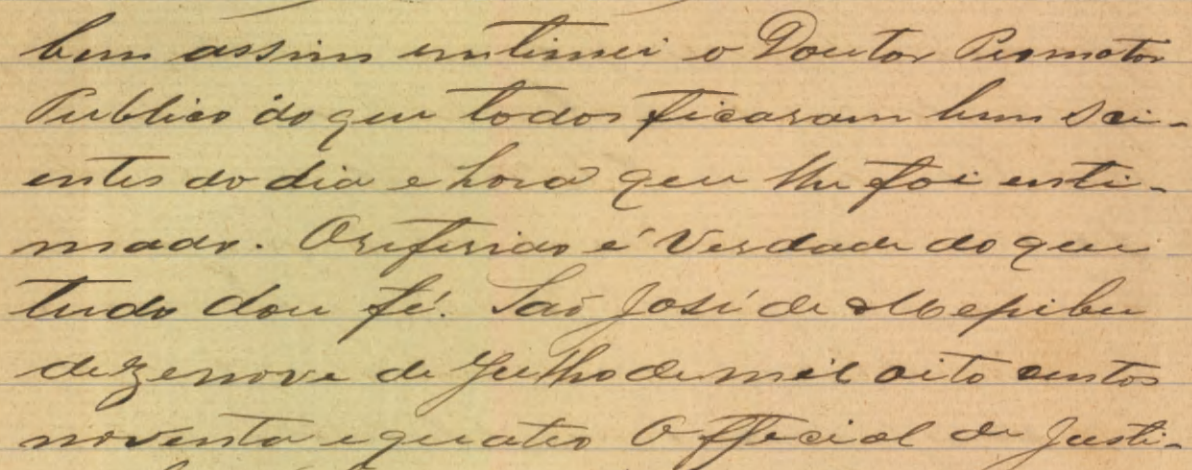 bem assim entimei o Doutor Promotor
Publico do que todos ficaram bem sci-
entes do dia e hora que lhe foi enti-
mado. O referido é Verdade do que
tudo dou fé. São José de Mepibu
dezenove de Julho de mil oito centos
noventa e quatro O Official de Justi-